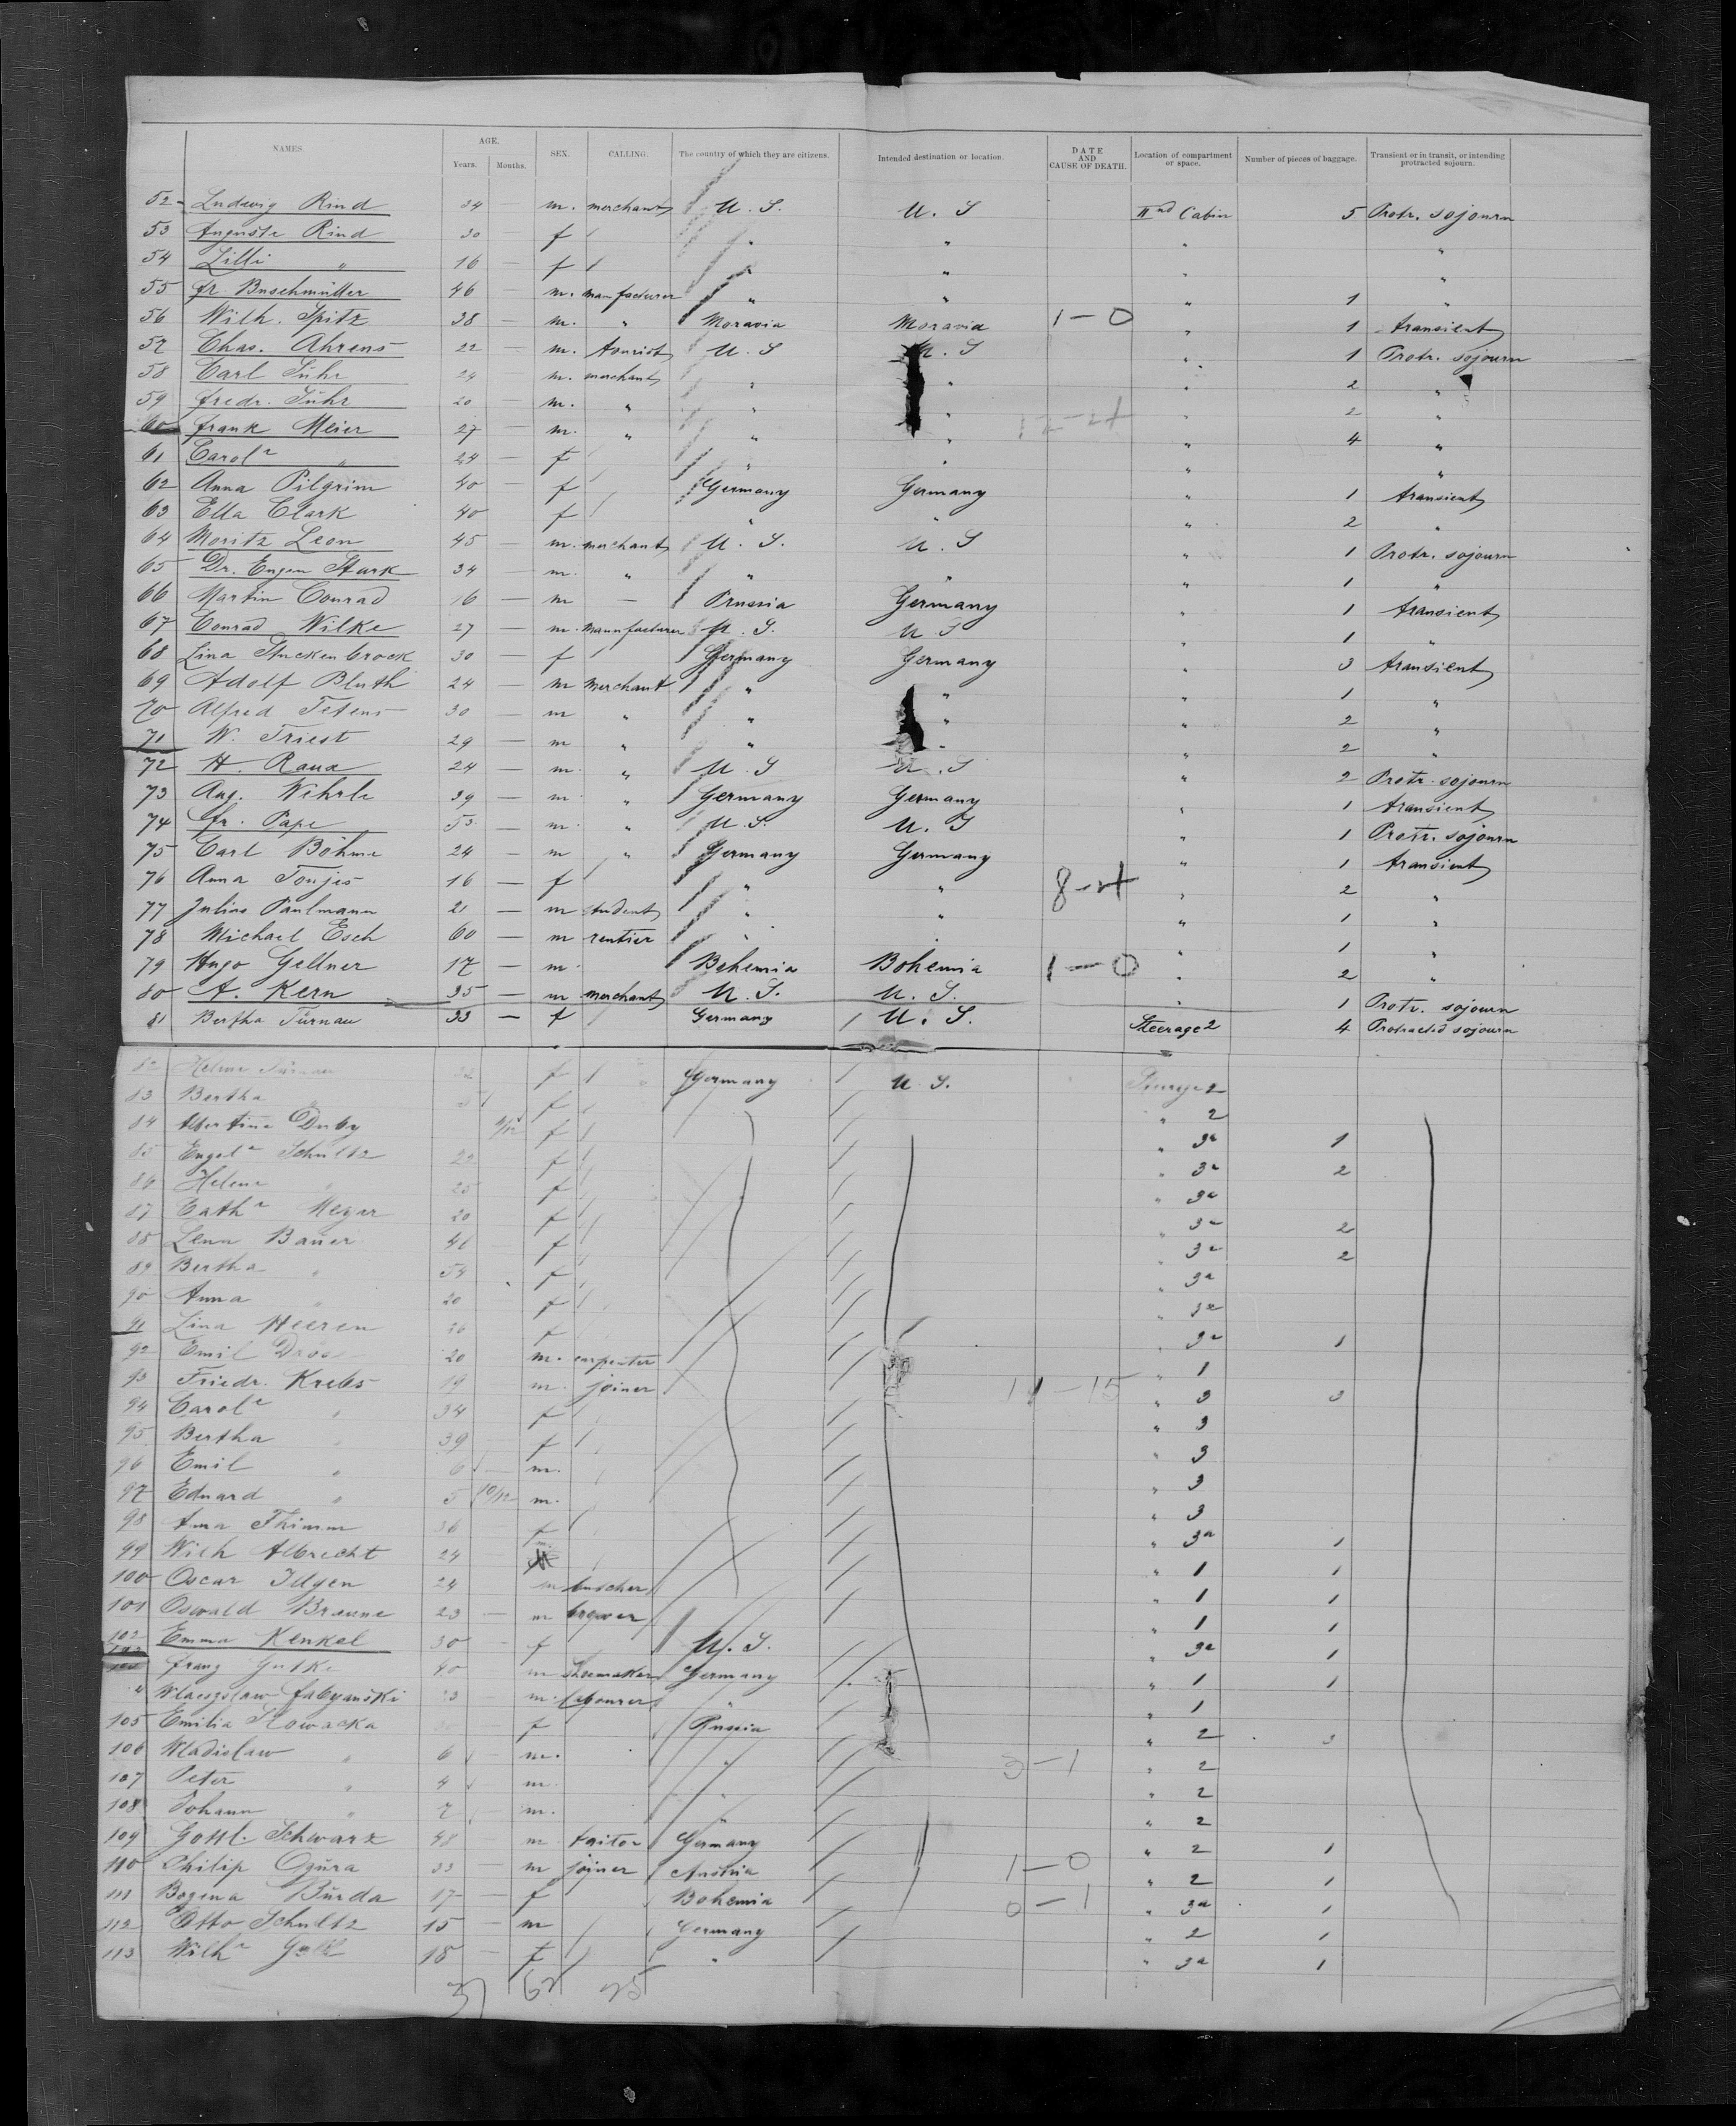 NAMES. AGE. Years. Months. SEX. CALLING. The country of which they are citizens. Intended destination or location. DATE AND CAUSE OF DEATH. Location of compartment or space. Number of pieces of baggage. Transient or in transit, or intending protracted sojourn.
52 Ludwig Rind 34 — m. merchant U. S. U. S IInd Cabin 5 Protr. sojourn
53 Auguste Rind 30 — f " " " "
54 Lilli " 16 — f " " " "
55 Fr. Buschmüller 46 — m. manufacturer " " " 1 "
56 Wilh. Spitz 38 — m. " Moravia Moravia 1-0 " 1 transient
57 Chas. Ahrens 22 — m. tourist U. S U. S " 1 Protr. sojourn
58 Carl Sühr 24 — m. merchant " " " 2 "
59 Fredr. Sühr 20 — m. " " " " 2 "
60 Frank Meier 27 — m. " " " " 4 "
61 Carole " 24 — f " " " "
62 Anna Pilgrim 40 — f Germany Germany " 1 transient
63 Ella Clark 40 — f " " " 2 "
64 Moritz Leon 45 — m. merchant U. S. U. S " 1 Protr. sojourn
65 Dr. Eugen Stark 34 — m. " " " " 1 "
66 Martin Conrad 16 — m — Prussia Germany " 1 transient
67 Conrad Wilke 27 — m. manufacturer U. S. U S " 1 "
68 Lina Stuckenbrock 30 — f Germany Germany " 3 transient
69 Adolf Bluth 24 — m merchant " " " 1 "
70 Alfred Tetens 30 — m " " " " 2 "
71 W. Triest 29 — m " " " " 2 "
72 H. Raua 24 — m. " U. S U. S " 2 Protr. sojourn
73 Aug. Wehrle 39 — m. " Germany Germany " 1 transient
74 Fr. Pape 53 — m. " U. S. U. S " 1 Protr. sojourn
75 Carl Böhme 24 — m " Germany Germany " 1 transient
76 Anna Tonjes 16 — f " " " 2 "
77 Julius Paulmann 21 — m student " " " 1 "
78 Michael Esch 60 — m rentier " " " 1 "
79 Hugo Gellner 17 — m. Bohemia Bohemia 1-0 " 2 "
80 A. Kern 35 — m merchant U. S. U. S. " 1 Protr. sojourn
81 Bertha Türnau 33 — f Germany U. S. Steerage 2 4 Protracted sojourn
82 Helene Türnau f Germany U. S. Steerage 2
83 Bertha " f " 2
84 Albertine Duby 11/12 f " 3a 1
85 Engele Schultz 22 f " 3a 2
86 Helene " 25 f " 3a
87 Cathe Meyer 20 f " 3a 2
88 Lena Bauer 46 f " 3a 2
89 Bertha " 54 f " 3a
90 Anna " 20 f " 3a
91 Lina Heeren 36 f " 3a 1
92 Emil 20 m. carpenter " 1
93 Friedr. Krebs 19 m. joiner 11-15 " 3 3
94 Carole " 34 f " 3
95 Bertha " 39 f " 3
96 Emil " 6 m. " 3
97 Eduard " 5 10/12 m. " 3
98 Anna Thimm 36 f " 3a 1
99 Wilh Albrecht 24 m " 1 1
100 Oscar Illgen 24 m butcher " 1 1
101 Oswald Braune 23 — m brewer " 1 1
102 Emma Kenkel 30 — f U. S. " 3a 1
Franz Gutke 40 m Shoemaker Germany " 1 1
" Wlaczyslaw Fabyanski 23 m. labourer " " 1
105 Emilia Slowacka f Russia " 2 3
106 Wladislaw " 6 m. " 3-1 " 2
107 Peter " 4 m. " " 2
108 Johann " m. " " 2
109 Gottl. Schwarz 48 m tailor Germany " 2 1
110 Philip Ogura 33 m joiner Austria 1-0 " 2 1
111 Bozena Burda 17 — f Bohemia 0-1 " 3a 1
112 Otto Schultz 15 — m Germany " 2 1
113 Wilhe 18 — f " " 3a 1